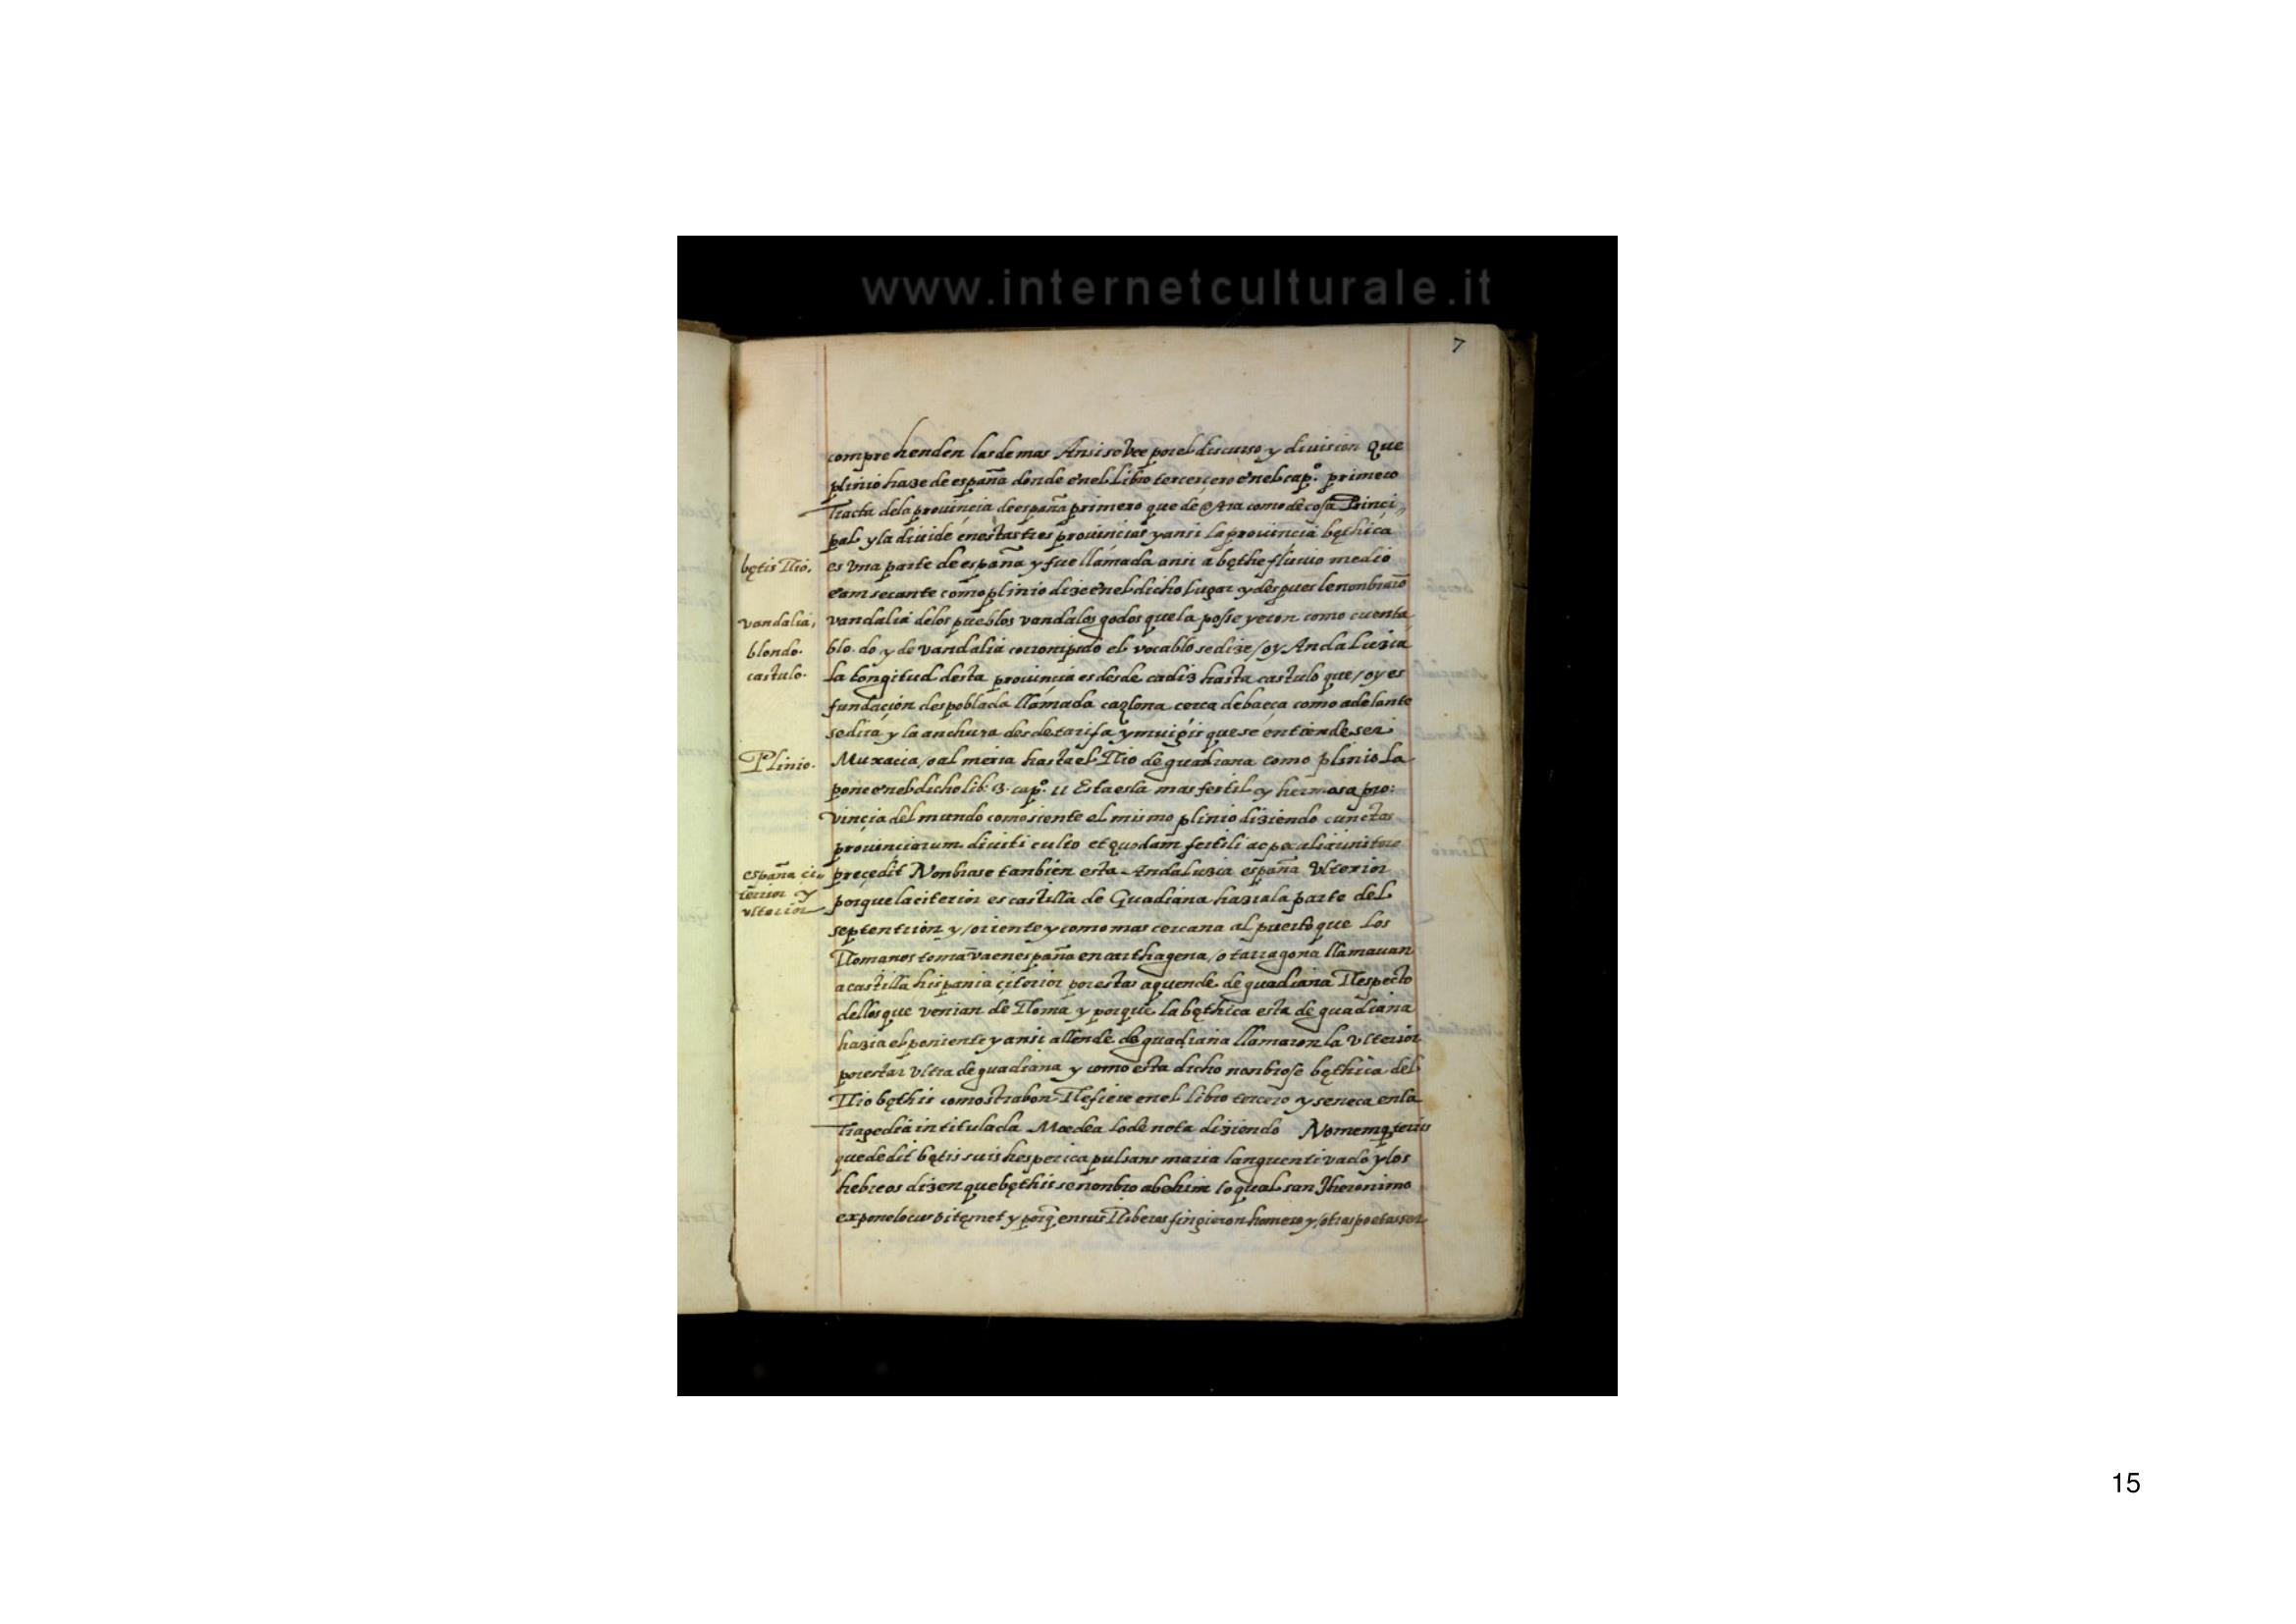 www.internetculturale.it
7
comprehenden las demas Ansi se vee por el discurso y diuision Que
plinio haze de españa donde enel libro tercercero enel cap.º primero
Tracta dela prouincia de españa primero que de otra como de cosa Princi„
pal y la diuide en estas tres prouincias y ansi la prouincia bęthica
bętis Rio.
es vna parte de españa y fue llamada ansi a bęthe fluuio medio
eam secante como plinio dize enel dicho lugar y despues le nonbrarō
vandalia,
vandalia delos pueblos vandalos godos que la posseyeron como cuenta
blondo.
blo.do y de vandalia corrompido el vocablo se dize /oy Andaluzia
castulo.
la longitud desta prouincia es desde cadiz hasta castulo que /oy es
fundaçion despoblada llamada cazlona cerca de baeça como adelante
se dira y la anchura desde tarifa y muigis que se entiende ser
Plinio.
Muxacra /o almeria hasta el Rio de guadiana como plinio la
pone enel dicho lib. 3. cap.º 11 Esta es la mas fertil y hermosa pro:
vinçia del mundo como siente el mismo plinio diziendo cunctas
prouinciarum diuiti culto et quodam fertili ac
españa ci„
terior y
vlterior
preçedit Nonbrase tanbien esta Andaluzia españa Vlterior
porque la citerior es castilla de Guadiana hazia la parte del
septentrion y /oriente y como mas cercana al puerto que los
Romanos en españa en carthagena /o tarragona llamauan
a castilla hispania çiterior por estar aquende de guadiana Respecto
dellos que venian de Roma y porque la bęthica esta de guadiana
hazia el poniente y ansi allende de guadiana llamaron la Vlterior
por estar vltra de guadiana y como esta dicho nonbrose bęthica del
Rio bęthis como strabon Refiere enel libro tercero y seneca en la
Tragedia intitulada Mœdea lo de nota diziendo Nomenq̃ terris
que dedit bętis suis hesperica pulsans maria languenti vado y los
hebreos dizen que bęthis se nonbro abehim lo qual san Jheronimo
expone y porq̃ en sus Riberas fingieron homero y /otros poetas ser
15